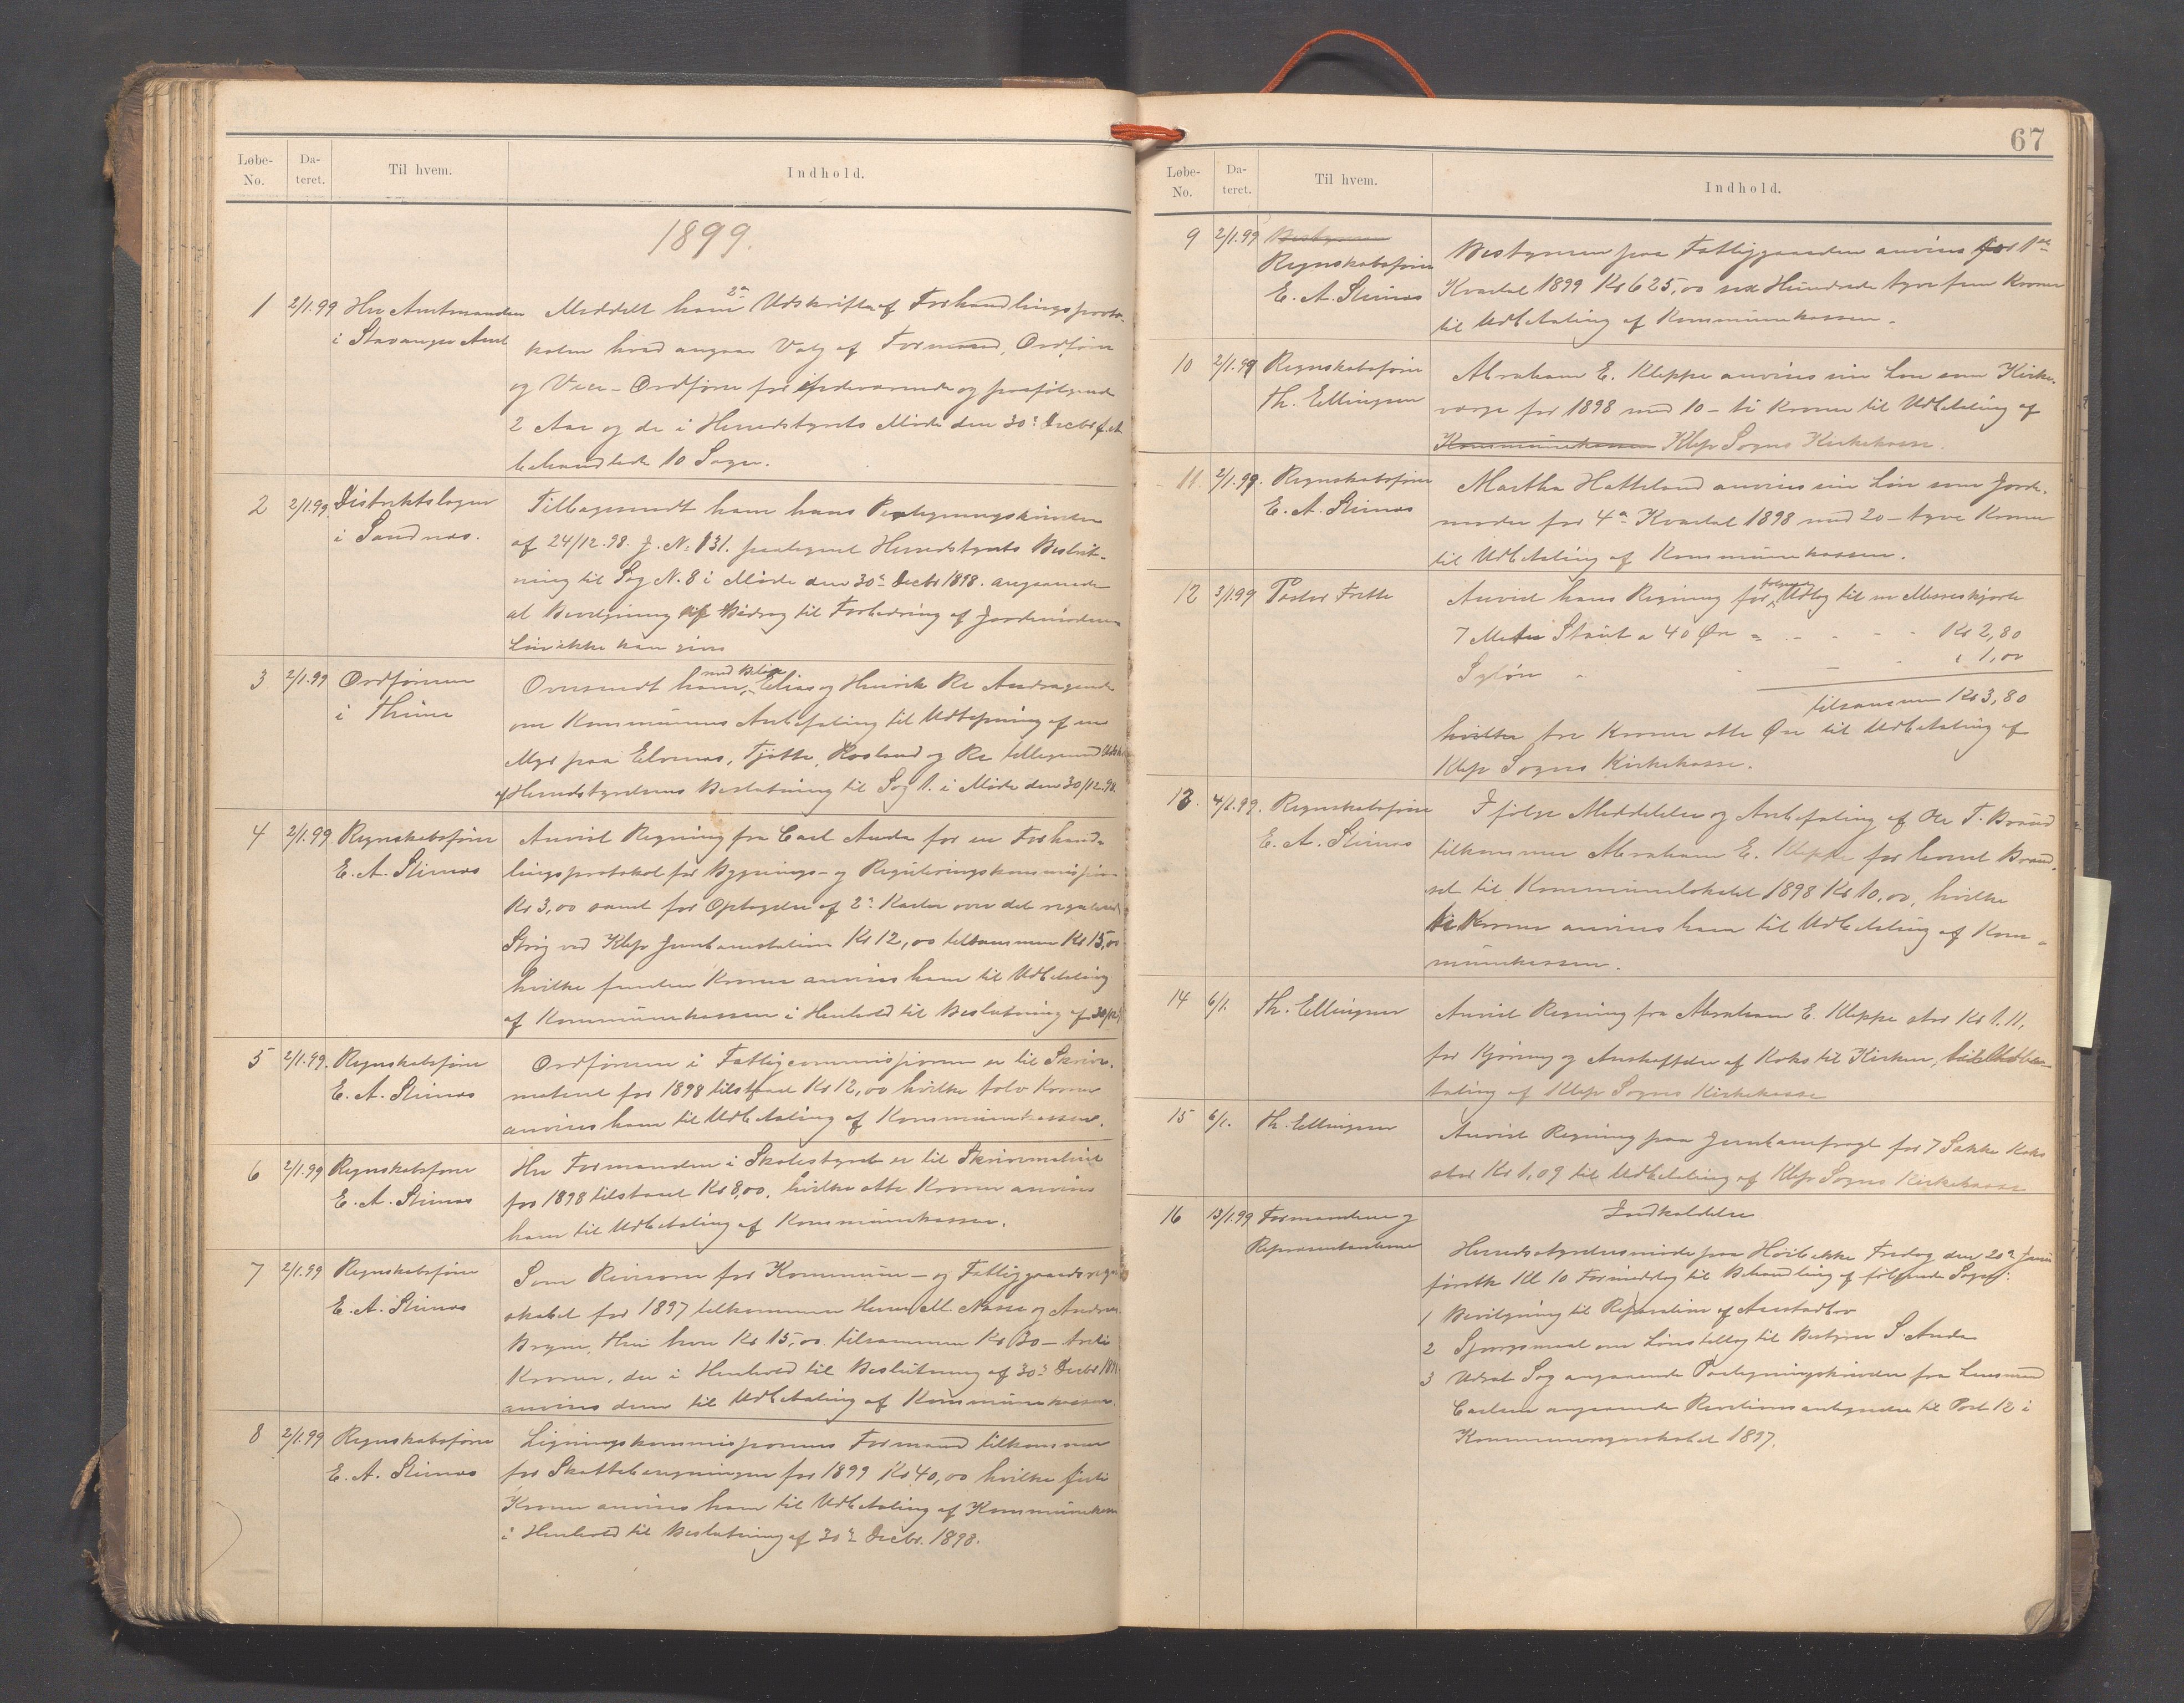 Løbe-No. Da-teret. Til hvem. Indhold.
1899.
1 2/1.99 Hr Amtmanden i Stavanger Amt
Meddelt ham 2de Udskrifter af Forhandlingsproto-
kolen hvad angaar Valg af Formand, Ordfører
og Vice-Ordfører for indeværende og paafølgende
2 Aar og de i Herredstyrets Møde den 30te Decbr f.A.
behandlede 10 Sager.
2 2/1.99 Distriktslægen i Sandnæs.
Tilbagesendt ham hans Paategningsskrivelse
af 24/12.98. J. N. 131. paategnet Herredstyrets Beslut-
ning til Sag N. 8 i Møde den 30te Decbr 1898. angaaende
at Bevilgning af Bidrag til Forbedring af Jordemoderens
Løn ikke kan gives
3 2/1.99 Ordføreren i Thime
Oversendt ham, med Bilag Elias og Henrik Re Andragende
om Kommunens Anbefaling til Udtapning af en
Myr paa Elvenes, Tjøtta, Rosland og Re tilligemed Udskr.
af Herredstyrelsens Beslutning til Sag 1. i Møde den 30/12.98.
4 2/1.99 Regnskabsfører E. A. Stirnæs
Anvist Regning fra Carl Anda for en Forhand-
lingsprotokol for Bygnings- og Reguleringskommission
Kr 3,00 samt for Optagelse af 2de Karter over det regulerede
Strøg ved Klep Jernbanestation Kr 12,00 tilsammen Kr 15,00
hvilke femten Kroner anvises ham til Udbetaling
af Kommunekassen i Henhold til Beslutning af 30/12.98
5 2/1.99. Regnskabsfører E. A. Stirnæs
Ordføreren i Fattigcommissionen er til Skrive-
materiel for 1898 tilstaaet Kr 12,00 hvilke tolv Kroner
anvises ham til Udbetaling af Kommunekassen.
6 2/1.99 Regnskabsfører E. A. Stirnæs
Hr Formanden i Skolestyret er til Skrivemateriel
for 1898 tilstaaet Kr 8,00, hvilke otte Kroner anvises
ham til Udbetaling af Kommunekassen.
7 2/1.99 Regnskabsfører E. A. Stirnæs
Som Revisorer for Kommune- og Fattiggaardsregn-
skabet for 1897 tilkommer Herrer M. Næse og Andreas
Bryne, Hver Kr 15,00 tilsammen Kr 30 - tredive
Kroner, der i Henhold til Beslutning af 30te Decbr 1898
anvises dem til Udbetaling af Kommunekassen.
8 2/1.99 Regnskabsfører E. A. Stirnæs
Ligningskommissionens Formand tilkommer
for Skatteberegningen for 1899 Kr 40,00 hvilke firti
Kroner anvises ham til Udbetaling af Kommunekassen
i Henhold til Beslutning af 30te Decbr. 1898.
67
Løbe-No. Da-teret. Til hvem. Indhold.
9 2/1.99 Bestyreren Regnskabsfører E. A. Stirnæs
Bestyreren paa Fattiggaarden anvises for 1ste
Kvartal 1899 Kr 625,00 sex Hundrede tyve fem Kroner
til Udbetaling af Kommunekassen.
10 2/1.99 Regnskabsfører Th. Ellingsen
Abraham E. Kleppe anvises sin Løn som Kirke-
værge for 1898 med 10 - ti Kroner til Udbetaling af
Kommunekassen Klep Sogns Kirkekasse.
11 2/1.99. Regnskabsfører E. A. Stirnæs
Martha Hatteland anvises sin Løn som Jorde-
moder for 4de Kvartal 1898 med 20 - tyve Kroner
til Udbetaling af Kommunekassen.
12 3/1.99 Pastor Fritte
Anvist hans Regning for følgende Udlæg til en Messeskjorte
7 Meter Stout a 40 Øre = Kr 2,80
Syløn " 1,00
tilsammen Kr 3,80
hvilke tre Kroner otte Øre til Udbetaling af
Klep Sogns Kirkekasse.
13. 4/1.99. Regnskabsfører E. A. Stirnæs
I følge Meddelelse og Anbefaling af Ole T. Braud
tilkommer Abraham E. Kleppe for leveret Brænd-
sel til Kommunelokalet 1898 Kr 10,00, hvilke
ti Kroner anvises ham til Udbetaling af Kom-
munekassen.
14 6/1. Th. Ellingsen
Anvist Regning fra Abraham E. Kleppe stor Kr 1.11,
for Kjøring og Anskaffelse af Koks til Kirken, til Udbe-
taling af Klep Sogns Kirkekasse
15 6/1. Th. Ellingsen
Anvist Regning paa Jernbanefragt for 7 Sække Koks
stor Kr 1,09 til Udbetaling af Klep Sogns Kirkekasse
16 13/1.99 Formændene og Repræsentanterne
Indkaldelse
Herredsstyrelsesmøde paa Høibakke Fredag den 20de Januar
førstk Kl 10 Formiddag til Behandling af følgende Sager:
1 Bevilgning til Reparation af Anstadbro
2 Spørgsmaal om Lønstillæg til Bestyrer S. Anda
3 Udsat Sag angaaende Paategningsskrivelse fra Lensmand
Carlsen angaaende Revisionsantegnelse til Post 12 i
Kommuneregnskabet 1897.